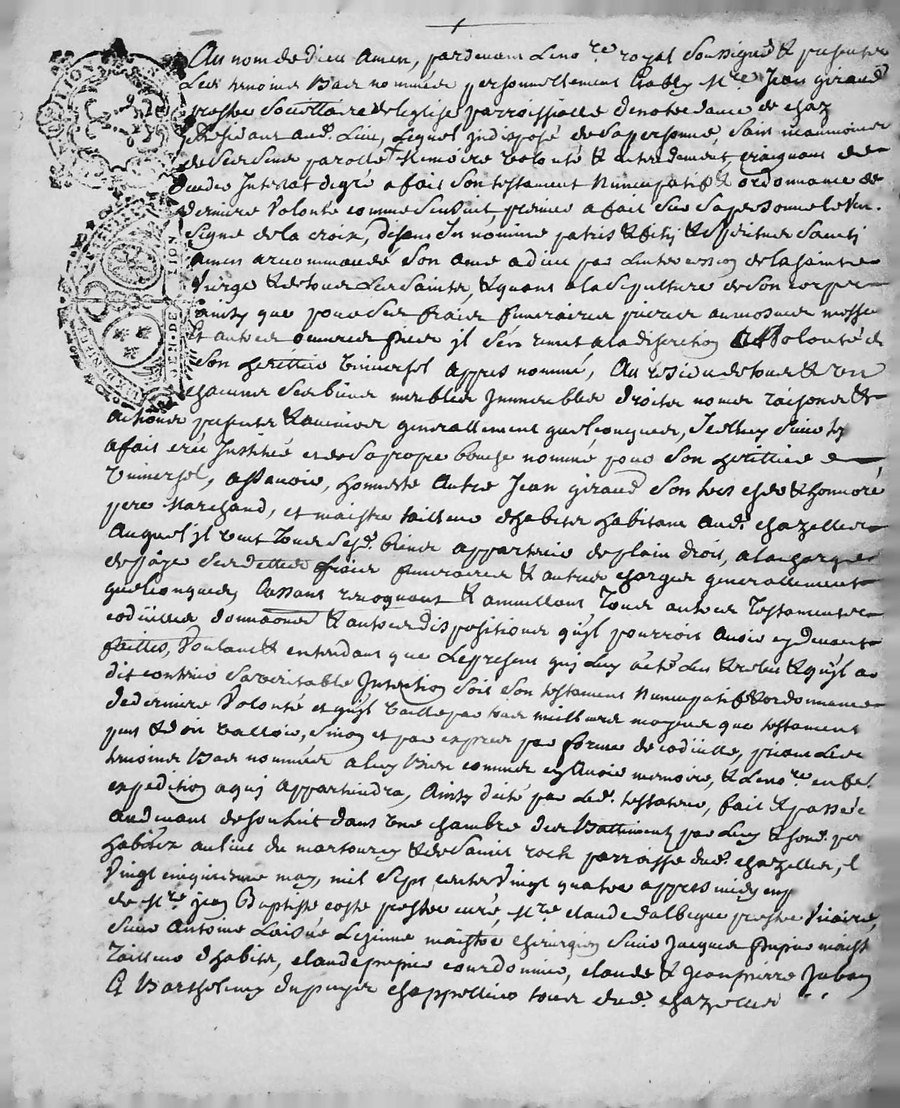 Au nom de dieu Amen, pardevant Le no.re royal Soussigné & presents
Les tmoins Bas nommés personnellement Estably M.re Jean giraud
prestre Societtaire de l'eglise parroissialle de notre dame de chaz
& Residant aud. Lieu, Lequel Indisposé de Sa personne Sain neanmoins
de Ses Sens parolle memoire vollonté & entendement, craignant de
deceder Intestat de gré a fait Son testament Nuncupatif & ordonnance de
derniere Volonté comme S'ensuit, premier a fait Sur Sa personne le ven.
Signe de la croix, disant In nomine patris & filij & Spiritus Sancti
Amen a recommandé Son ame a dieu par L'intercession de la sainte
Vierge & de tous Les Saints, & quant a la Sepulture de Son corps
ainsy que pour Ses fraix funeraires prieres aumosnes messes
et autres oeuvres pies il S'en remet a la discretion & Volonté de
Son heritier Universel appres nommé, Au residu de tous & un
chacuns Ses biens meubles Immeubles droits noms raisons &
actions presents & avenir generallement quelconques, Icelluy Sieur t.
a fait créé Institué et de Sa propre bouche nommé pour Son heritier
Universel, assavoir, honneste Autre Jean giraud Son tres cher & honnoré
pere Marchand, et maistre tailleur d'habits habitant aud. chazelles
Auquel il veut Tous Sesd. biens appartenir de plain droit, a la charge
de payer Ses dettes fraix funeraires & autres charges generallement
quelconques, Cassant revoquant & annullant Tous autres Testaments
codicilles, donnations & autres dispositions qu'il pourroit Avoir cy devant
faittes, Voulant & entendant que Le present qui Luy a été Lu & relu & qu'il a
dit contenir Sa veritable Intention Soit Son testament Nuncupatif & ordonnance
de derniere Volonté et qu'il vaille par tous meilleurs moyens que testament
peut & doit valloir, Sinon et par exprès par forme de codicille, priant Les
tmoins Bas nommés a luy Bien connus en Avoir memoire, & Le no.re en fe.
expedition a qui appartiendra, Ainsy dicté par Led. testateur, fait & passé
audevant de Son lit dans une chambre des Battiments par Luy & Sond. pere
habités au lieu du martourey & de Saint roch parroisse dud. chazelles, l
Vingt cinquieme may, mil Sept cents Vingt quatre appres midy en p
de M.re Jean Baptiste coste prestre curé, M.re claude dalbeque prestre Vicaire,
Sieur Antoine Laisné Lezinne maistre chirurgien Sieur Jacques pupier maist
Tailleur d'habits, claude pupier courdonnier, claude & Jean pierre Juban
& Barthelemy dupuyer chappellier tous dud. chazelles